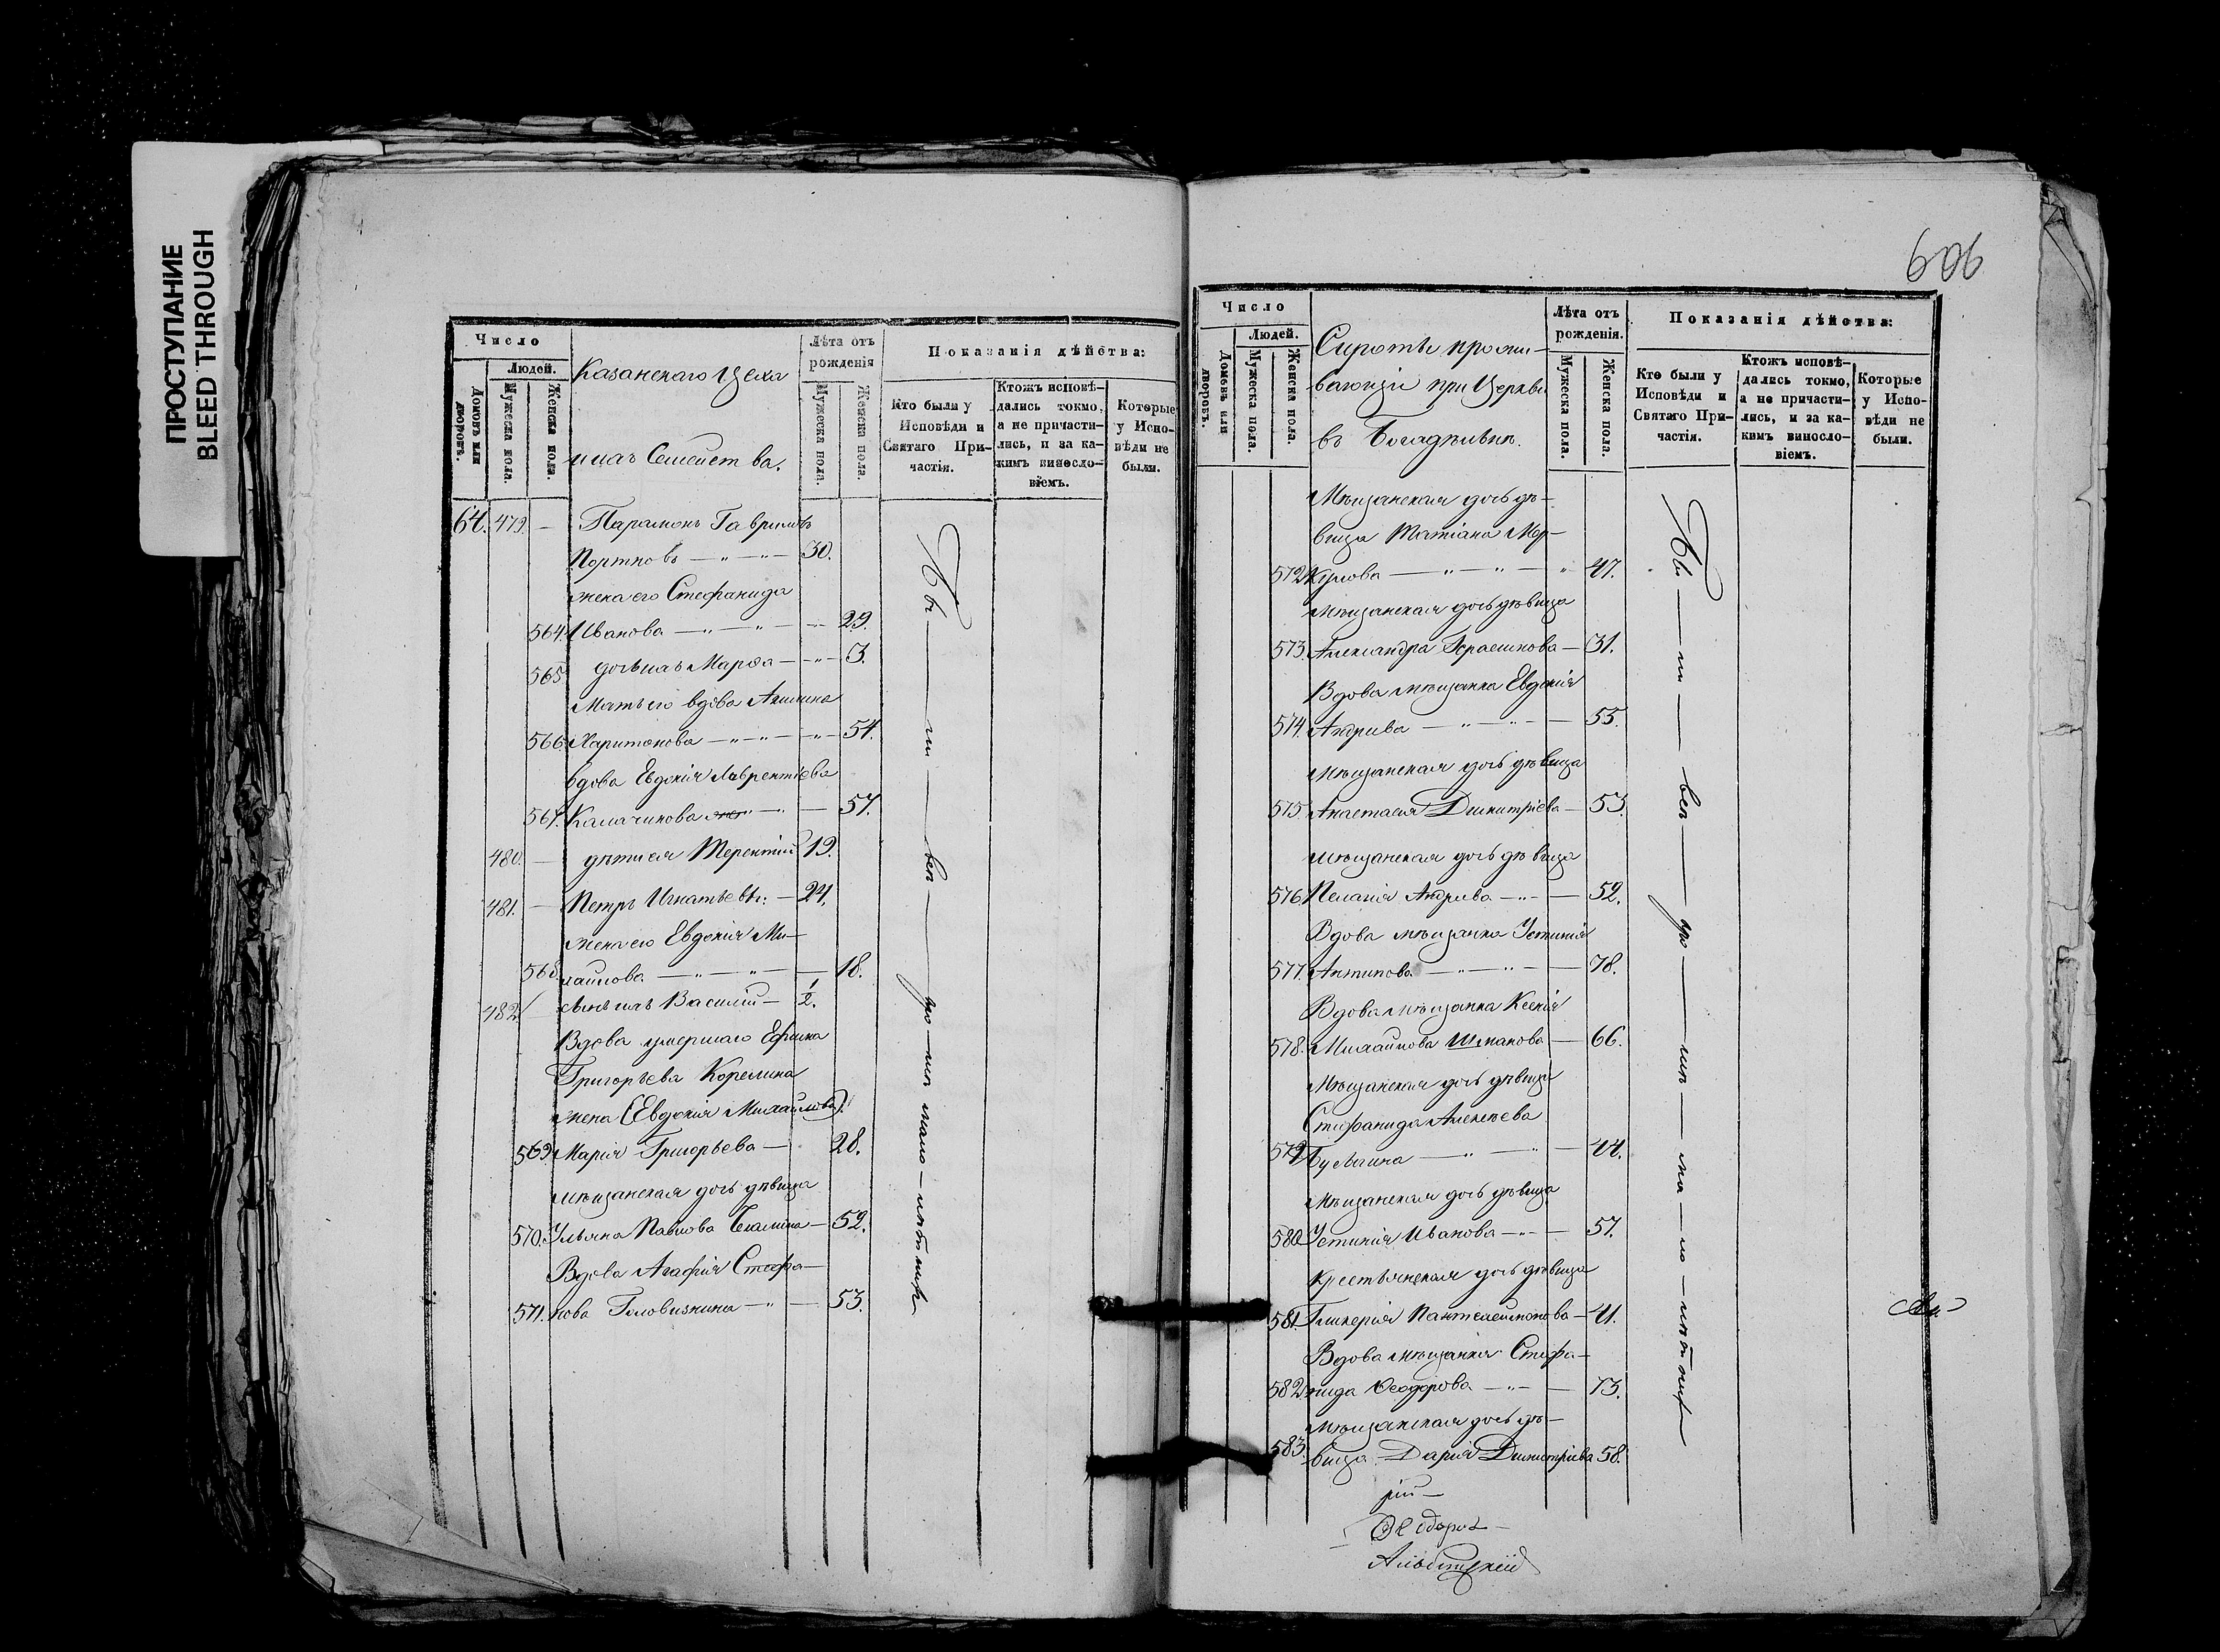 ПРОСТУПАНИЕ
BLEED THROUGH
Число
Людей.
Домовъ или дворовъ.
Мужеска пола.
Женска пола.
Казанскаго Цеха
и ихъ Семейства.
Лѣта отъ рожденія
Мужеска пола.
Женска пола.
Показанія дѣйства:
Кто были у Исповѣди и Святаго Причастія.
Ктожъ исповѣдались токмо, а не причастились, и за какимъ винословіемъ.
Которые у Исповѣди не были.
64. 479. — Парамонъ Гавриловъ
Портновъ — „ — „ — 30.
жена его Стефанида
564. Иванова — „ — „ — 29.
565 дочь ихъ Марѳа — „ — 3.
Мать его вдова Акилина
566. Харитонова — „ — „ — 54.
вдова Евдокія Лаврентіева
567. Калачикова — „ — 57.
480. — дѣти ея Терентій 19.
481. — Петръ Игнатьевъ. — 24.
жена его Евдокія Ми-
568. хайлова — „ — „ — 18.
482. сынъ ихъ Василій — 1/2.
Вдова умершаго Ефима
Григорьева Корелина
жена (Евдокія Михайлова).
569. Марія Григорьева — 28.
мѣщанская дочь дѣвица
570. Ульяна Павлова — 52.
Вдова Агафія Стефа-
571. нова Головизнина — „ — 53.
606
Число
Людей.
Домовъ или дворовъ.
Мужеска пола.
Женска пола.
Сироты прожи-
вающіи при Церкви
въ Богадѣльнѣ.
Лѣта отъ рожденія.
Мужеска пола.
Женска пола.
Показанія дѣйства:
Кто были у Исповѣди и Святаго Причастія.
Ктожъ исповѣдались токмо, а не причастились, и за какимъ винословіемъ.
Которые у Исповѣди не были.
Мѣщанская дочь дѣ-
вица Татіана Мер-
572 курова — „ — „ — „ 47.
мѣщанская дочь дѣвица
573. Александра Герасимова — 31.
Вдова мѣщанка Евдокія
574. Андреева — „ — „ — 55.
мѣщанская дочь дѣвица
575. Анастасія Димитріева — 53.
мѣщанская дочь дѣвица
576. Пелагія Андреева — „ — 52.
Вдова мѣщанка Устинія
577. Антипова — „ — „ — 78.
Вдова мѣщанка Ксенія
578. Михайлова Шмакова — 66.
Мѣщанская дочь дѣвица
Стефанида Алексѣева
579 Булыгина — „ — „ — 44.
Мѣщанская дочь дѣвица
580 Устинія Иванова — „ — 57.
Крестьянская дочь дѣвица
581. Гликерія Пантелеимонова — 41.
Вдова мѣщанка Стефа-
582 нида Ѳеодорова — „ — 73.
мѣщанская дочь дѣ-
583. вица Дарія Димитріева 58.
рій —
Ѳеодоръ —